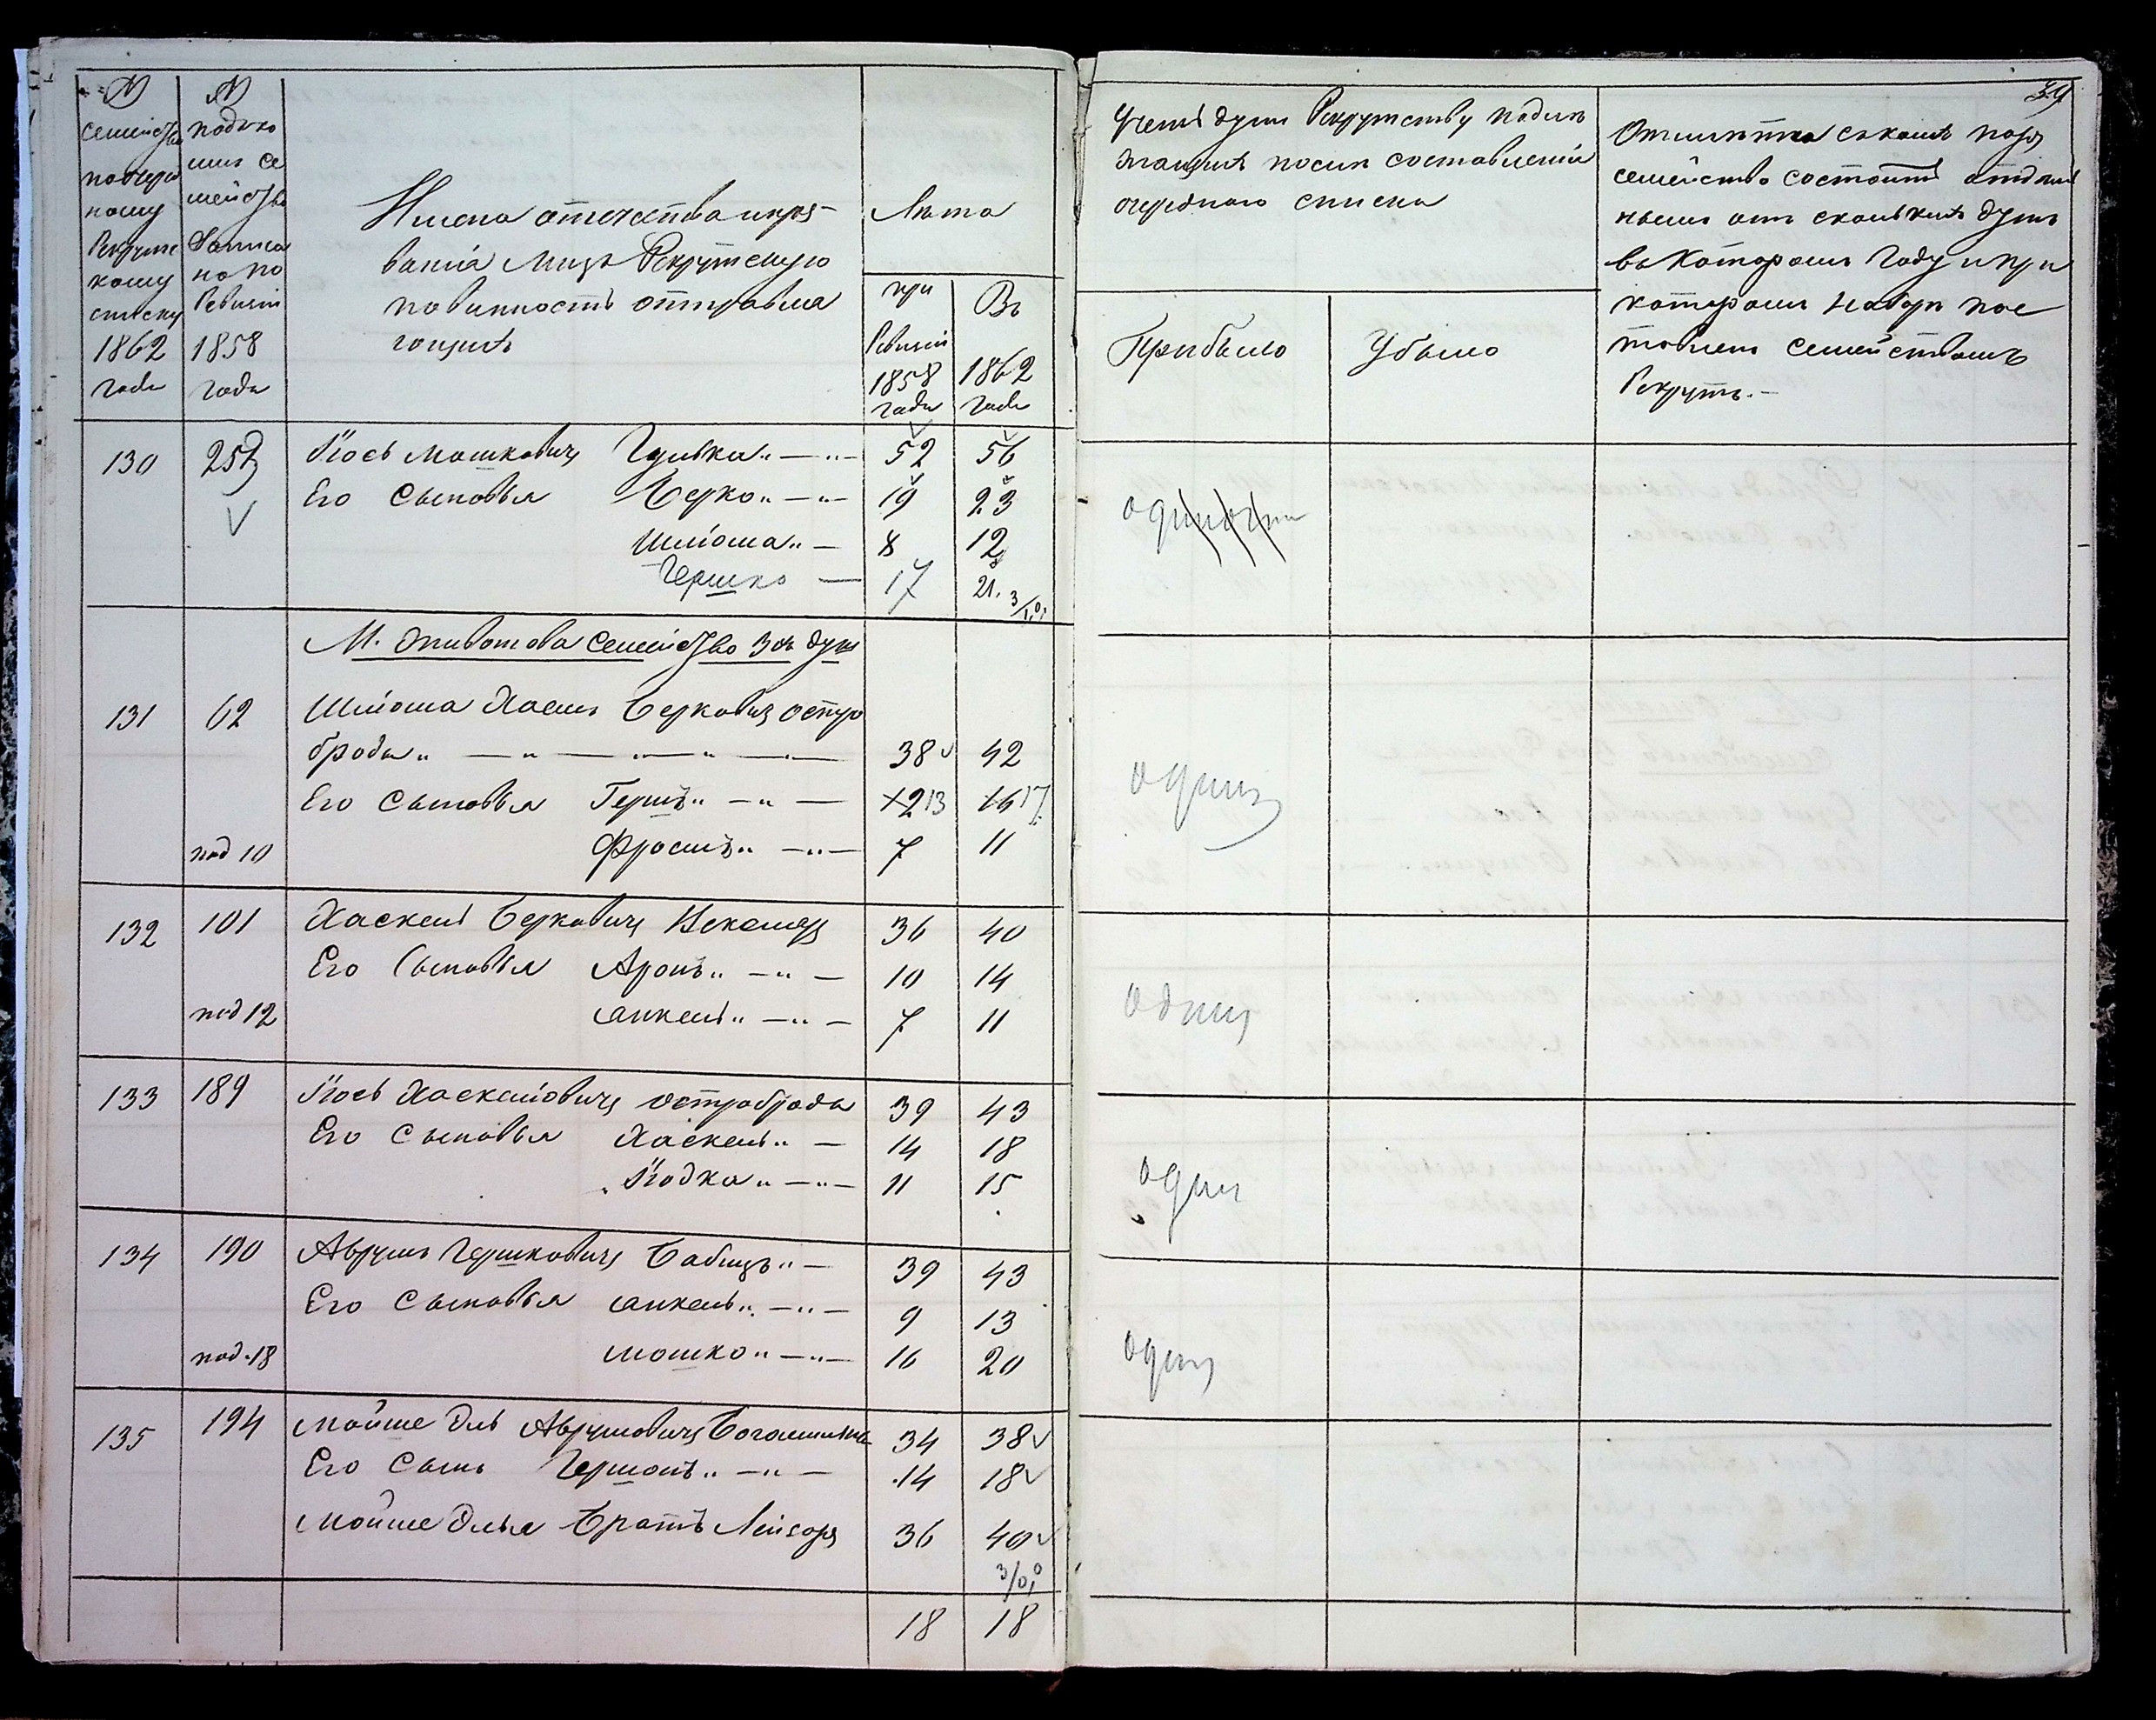 №
семейства
по очеред
ному
Рекрутс
кому
списку
1862
года
№
под коо
имъ се
мейство
Записа
но по
Ревизіи
1858
года
Имена отечества и проз-
ванія лицъ Рекрутскую
повинность отправля
ющихъ
Лѣта
при
Ревизіи
1858
года
Въ
1862
года
130 253 Іось Мошковичъ Гулька 52 56
Его Сыновья Берко 19 23
Шліома 8 12
Гершко 17 21.
3/1,0,
М. Животова Семейство 3хъ душ
131 62 Шліома Хаимъ Берковичъ Остро
брода 38 42
Его Сыновья Гершъ 12 13 16 17
под 10 Фроимъ 7 11
132 101 Хаскель Берковичъ 36 40
Его Сыновья Аронъ 10 14
под 12 Янкель 7 11
133 189 Іось Хаскеліовичъ Остроброда 39 43
Его Сыновья Хаскель 14 18
Іодка 11 15
134 190 Аврумъ Гершковичъ Бабицъ 39 43
Его Сыновья Янкель 9 13
под 18 Мошко 16 20
135 194 Мойше Эль Аврумовичъ 34 38
Его Сынъ Гершонъ 14 18
Мойше Элья Братъ Лейзоръ 36 40
3/0,0
18 18
39
Счетъ душъ Рекрутству подле
жащихъ послѣ составленія
очереднаго списка
Прибыло
Убыло
Отмѣтка съ какихъ поръ
семейство состоитъ отдѣль
нымъ отъ сколькихъ душъ
въ которомъ году и при
которомъ наборѣ пос
тавленъ семействомъ
Рекрутъ.-
один
один
один
один